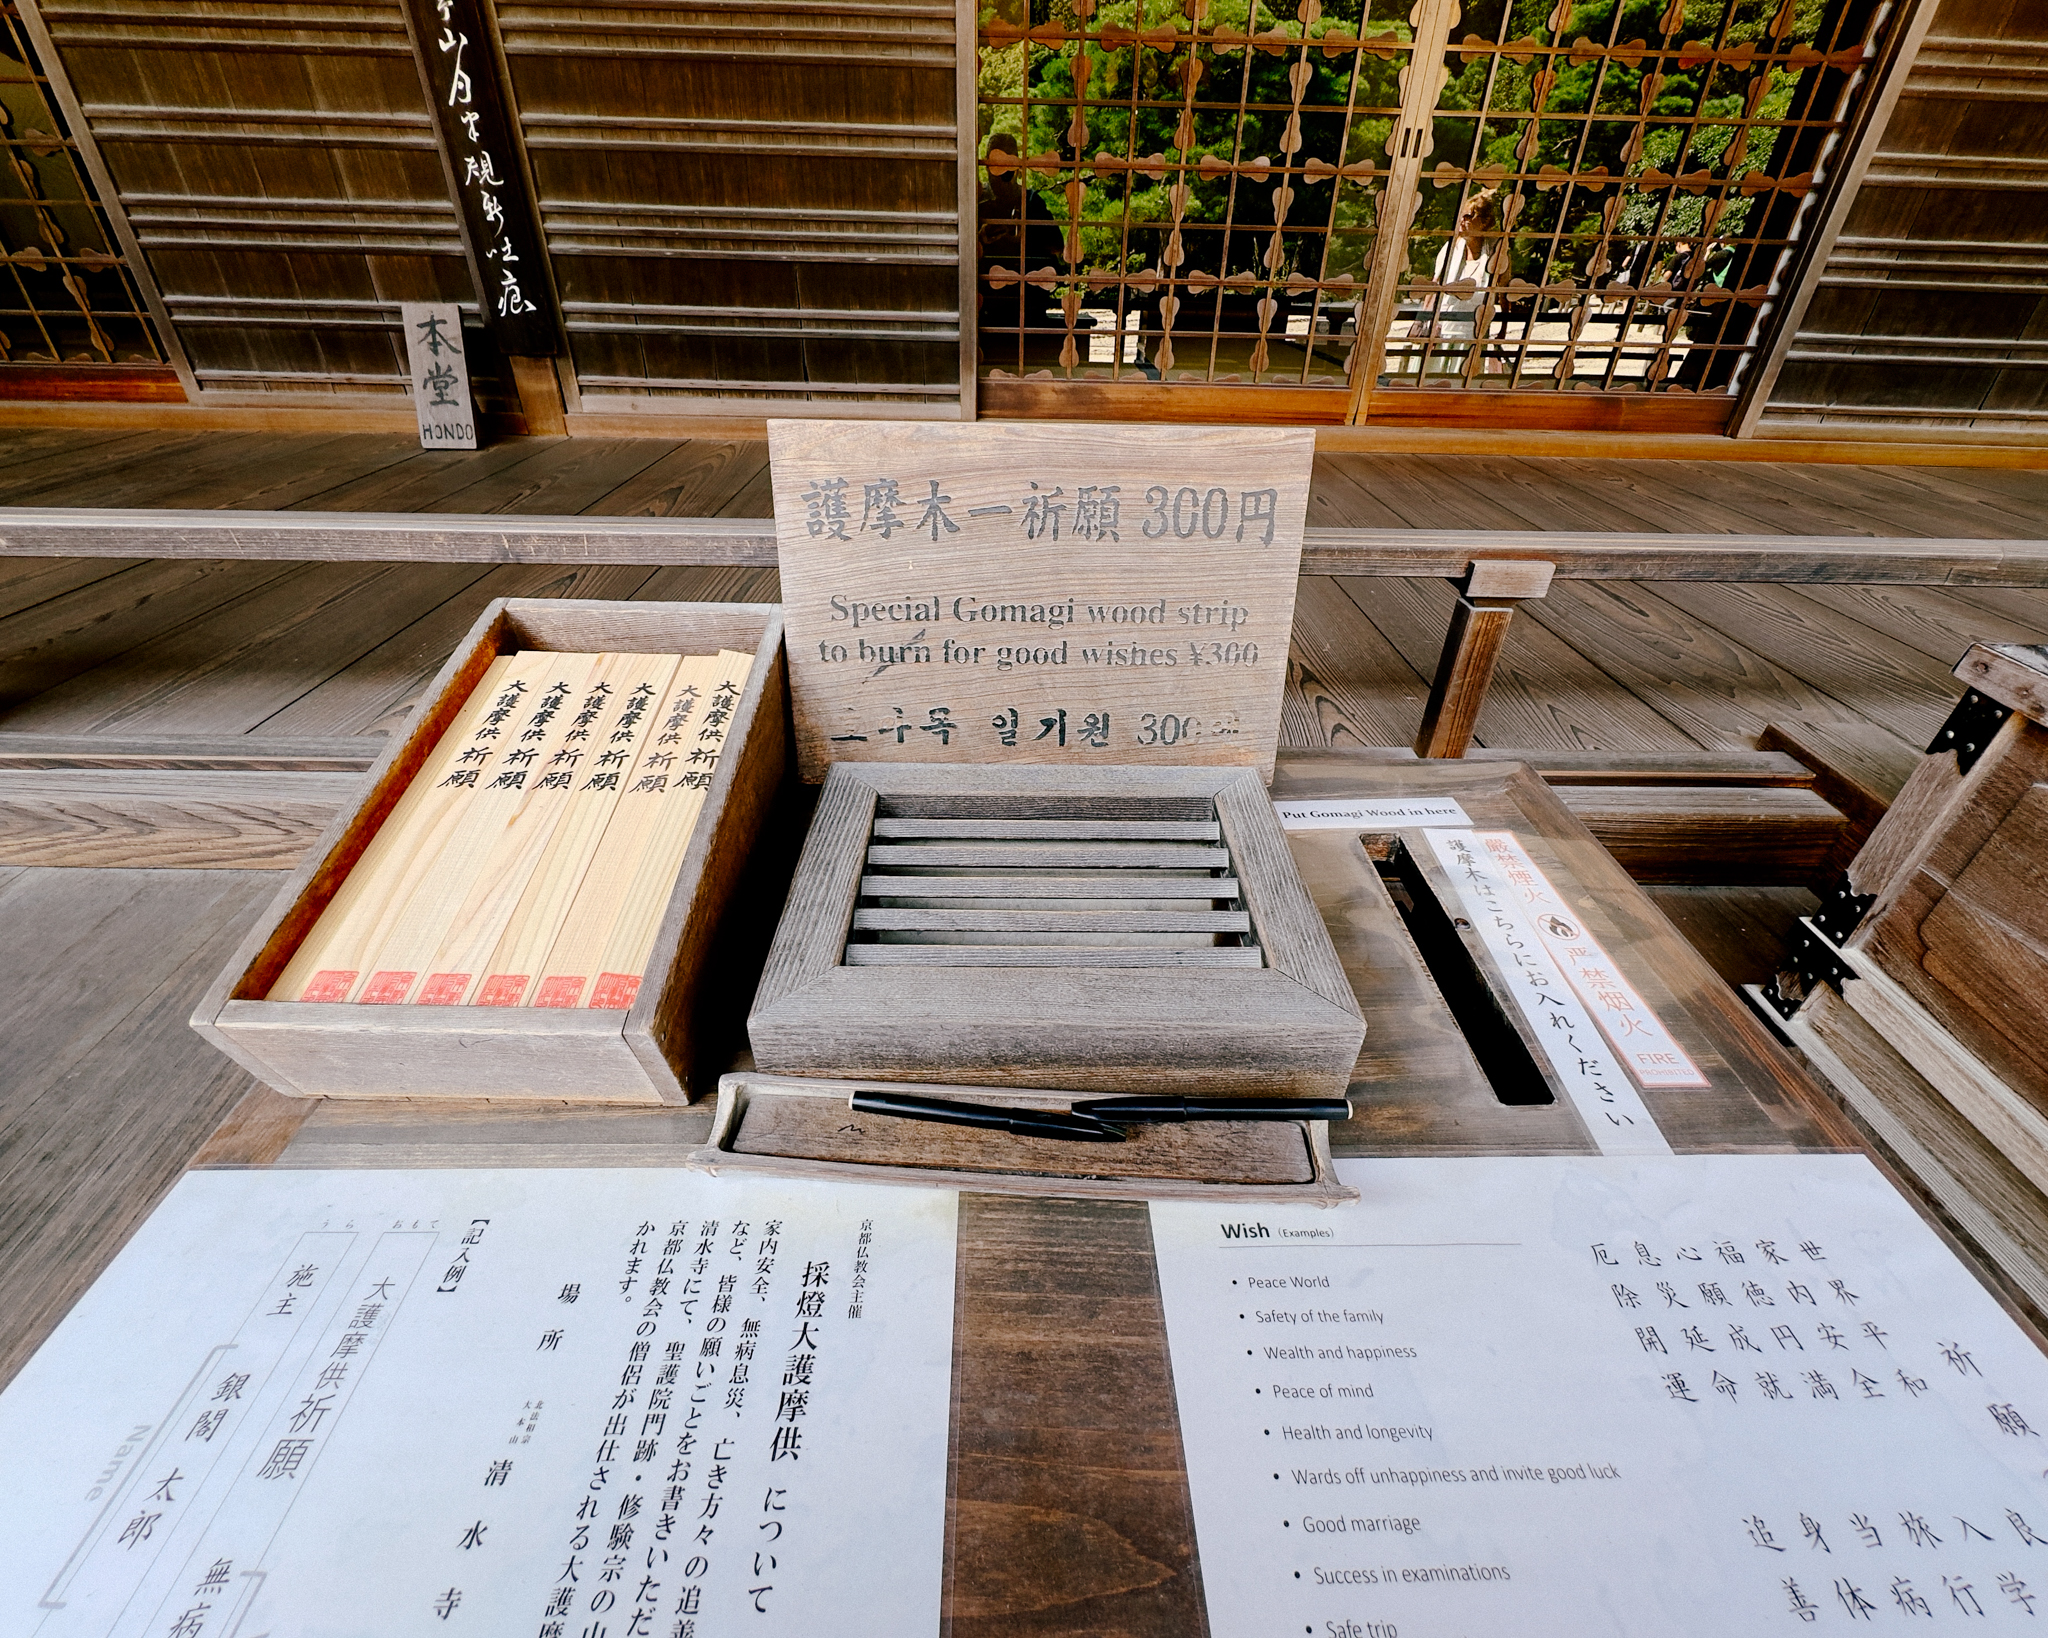 山月半規新吐痕
本堂
HONDO
護摩木一祈願 300円
Special Gomagi wood strip
to burn for good wishes ¥300
호마목 일기원 300
大護摩供祈願
大護摩供祈願
大護摩供祈願
大護摩供祈願
大護摩供祈願
大護摩供祈願
Put Gomagi Wood in here
護摩木はこちらにお入れください
嚴禁煙火
严禁烟火
FIRE
PROHIBITED
京都仏教会主催
採燈大護摩供 について
家内安全、無病息災、亡き方々の追善
など、皆様の願いごとをお書きいただ
清水寺にて、聖護院門跡・修験宗の山
京都仏教会の僧侶が出仕される大護摩
かれます。
場所
北法相宗
大本山
清水寺
【記入例】
おもて
大護摩供祈願
うら
施主
銀閣 太郎
無病
Name
Wish (Examples)
• Peace World
• Safety of the family
• Wealth and happiness
• Peace of mind
• Health and longevity
• Wards off unhappiness and invite good luck
• Good marriage
• Success in examinations
• Safe trip
祈願
世界平和
家内安全
福徳円満
心願成就
息災延命
厄除開運
良
入学
旅行
当病
身体
追善